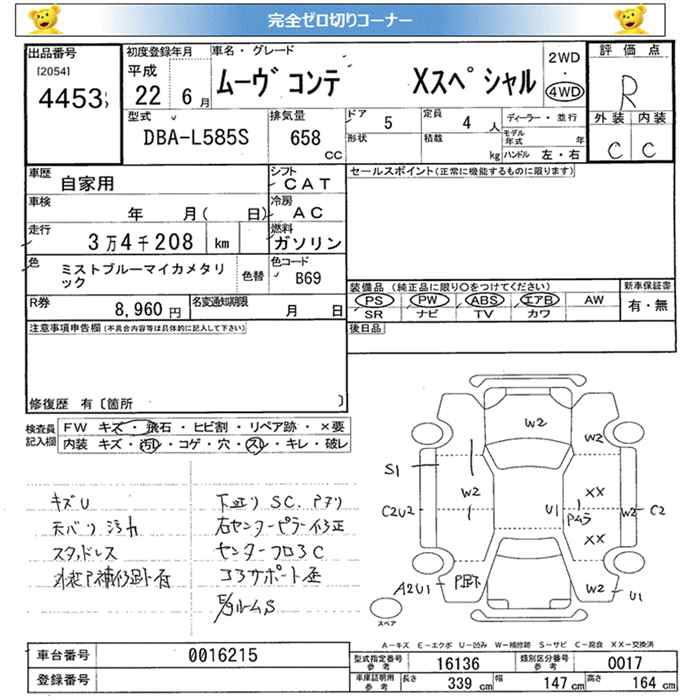 完全ゼロ切りコーナー
出品番号
[2054]
4453
初度登録年月
平成
22 6月
車名・グレード
ムーヴ コンテ Xスペシャル
2WD
・
4WD
評価点
R
外装 内装
C C
型式
DBA-L585S
排気量
658
CC
ドア 5
形状
定員 4 人
積載 kg
ディーラー・並行
モデル年式 年
ハンドル 左・右
車歴
自家用
シフト
CAT
車検
年 月( 日)
冷房
AC
走行
3万4千208 km
燃料
ガソリン
色
ミストブルーマイカメタリック
色替
色コード
B69
R券
8,960円
名変通知期限
月 日
セールスポイント(正常に機能するものに限ります)
装備品(純正品に限り○をつけてください)
PS PW ABS エアB AW
SR ナビ TV カワ
新車保証書
有・無
後日品
注意事項申告欄(不具合内容等は具体的に記入して下さい)
修復歴 有〔箇所 〕
検査員記入欄
FW キズ・飛石・ヒビ割・リペア跡・×要
内装 キズ・汚れ・コゲ・穴・スレ・キレ・破レ
キズU
天バリ汚れ
スタッドレス
下廻り SC.
右センターピラー修正
センターフロアC
コアサポート歪
W2
W2
S1
W2
C2U2
U1
Pムラ
XX
XX
W2
C2
A2U1
P凹ト
W2
U1
スペア
A-キズ E-エクボ U-凹み W-補修跡 S-サビ C-腐食 XX-交換済
車台番号 0016215
登録番号
型式指定番号参考 16136
類別区分番号参考 0017
車庫証明用参考 長さ 339cm 幅 147cm 高さ 164cm